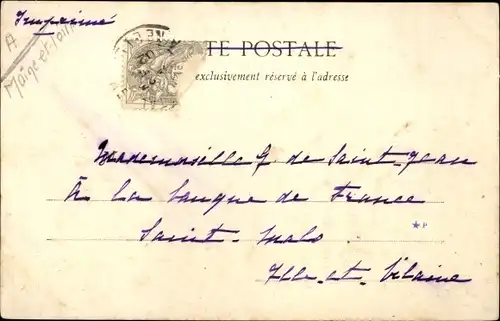 Imprimé
A
TE POSTALE
exclusivement réservé à l'adresse
Mademoiselle G. de Saint-Jean
à la banque de France
Saint-Malo
Ille-et-Vilaine